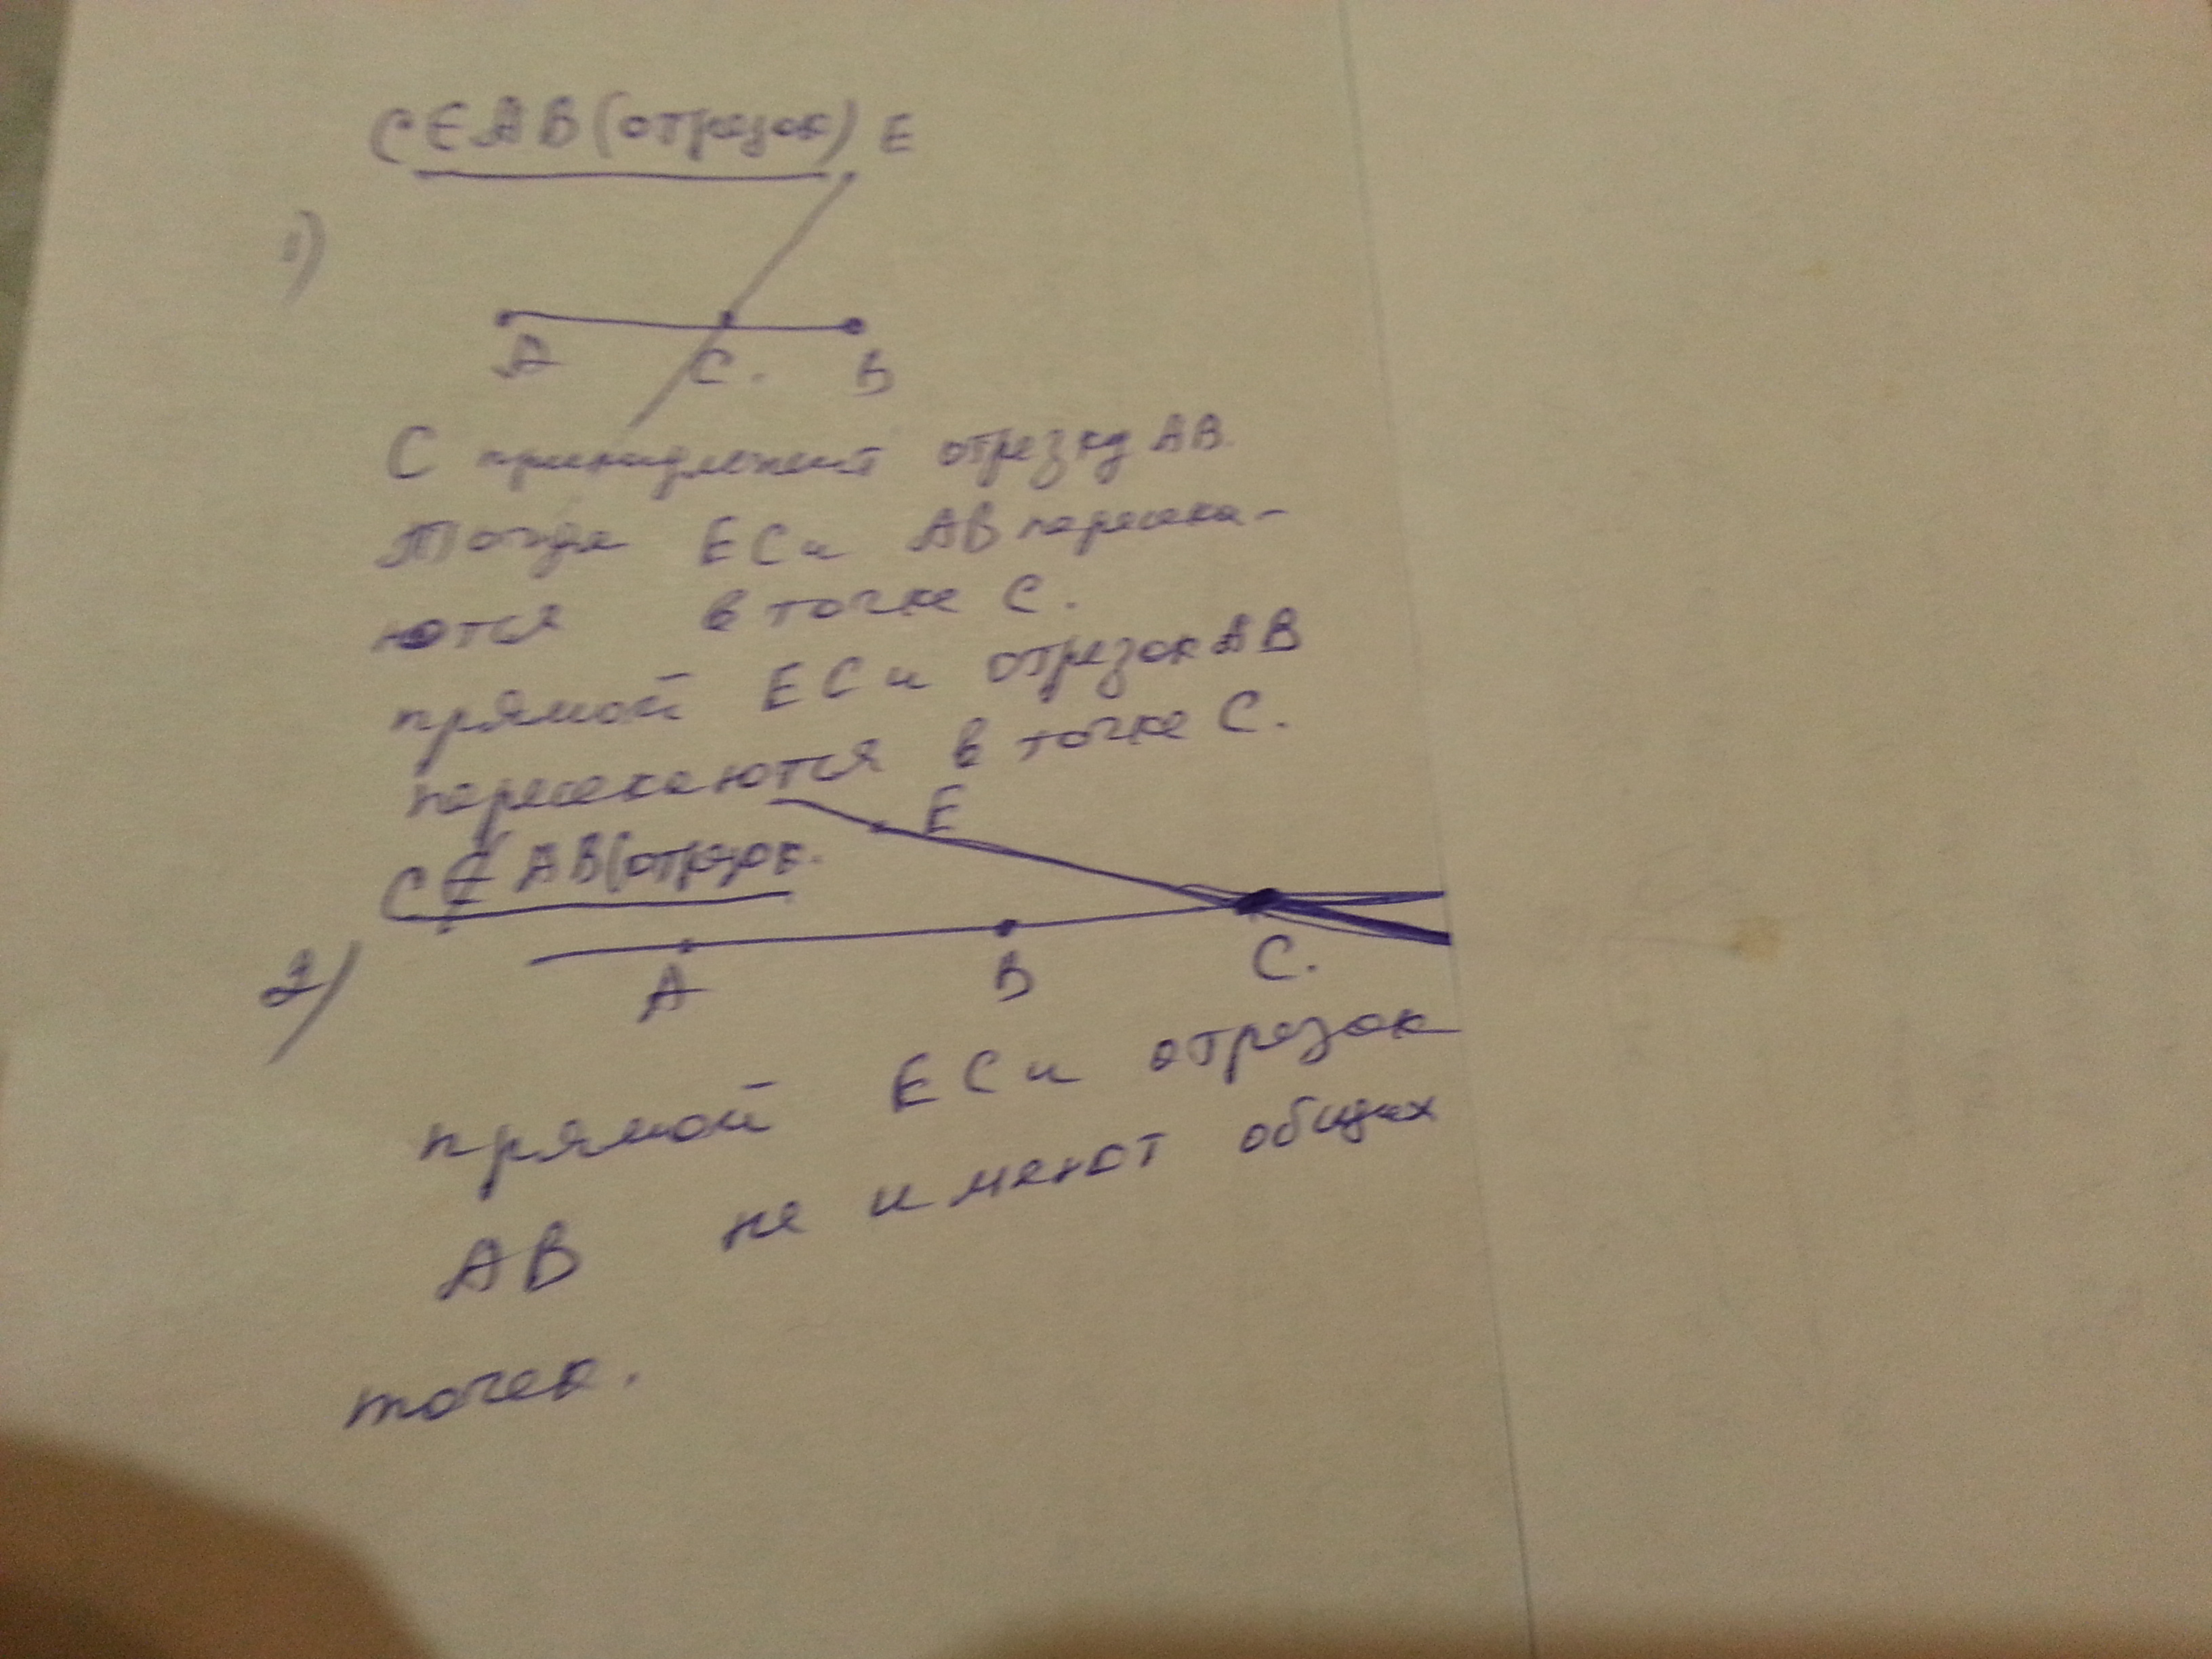 C ∈ AB (отрезок) E
1)
A C. B
С принадлежит отрезку AB.
Тогда EC и AB пересека-
ются в точке C.
прямой EC и отрезок AB
пересекаются в точке C.
E
C ∉ AB (отрезок.
2)
A B C.
прямой EC и отрезок
AB не имеют общих
точек.